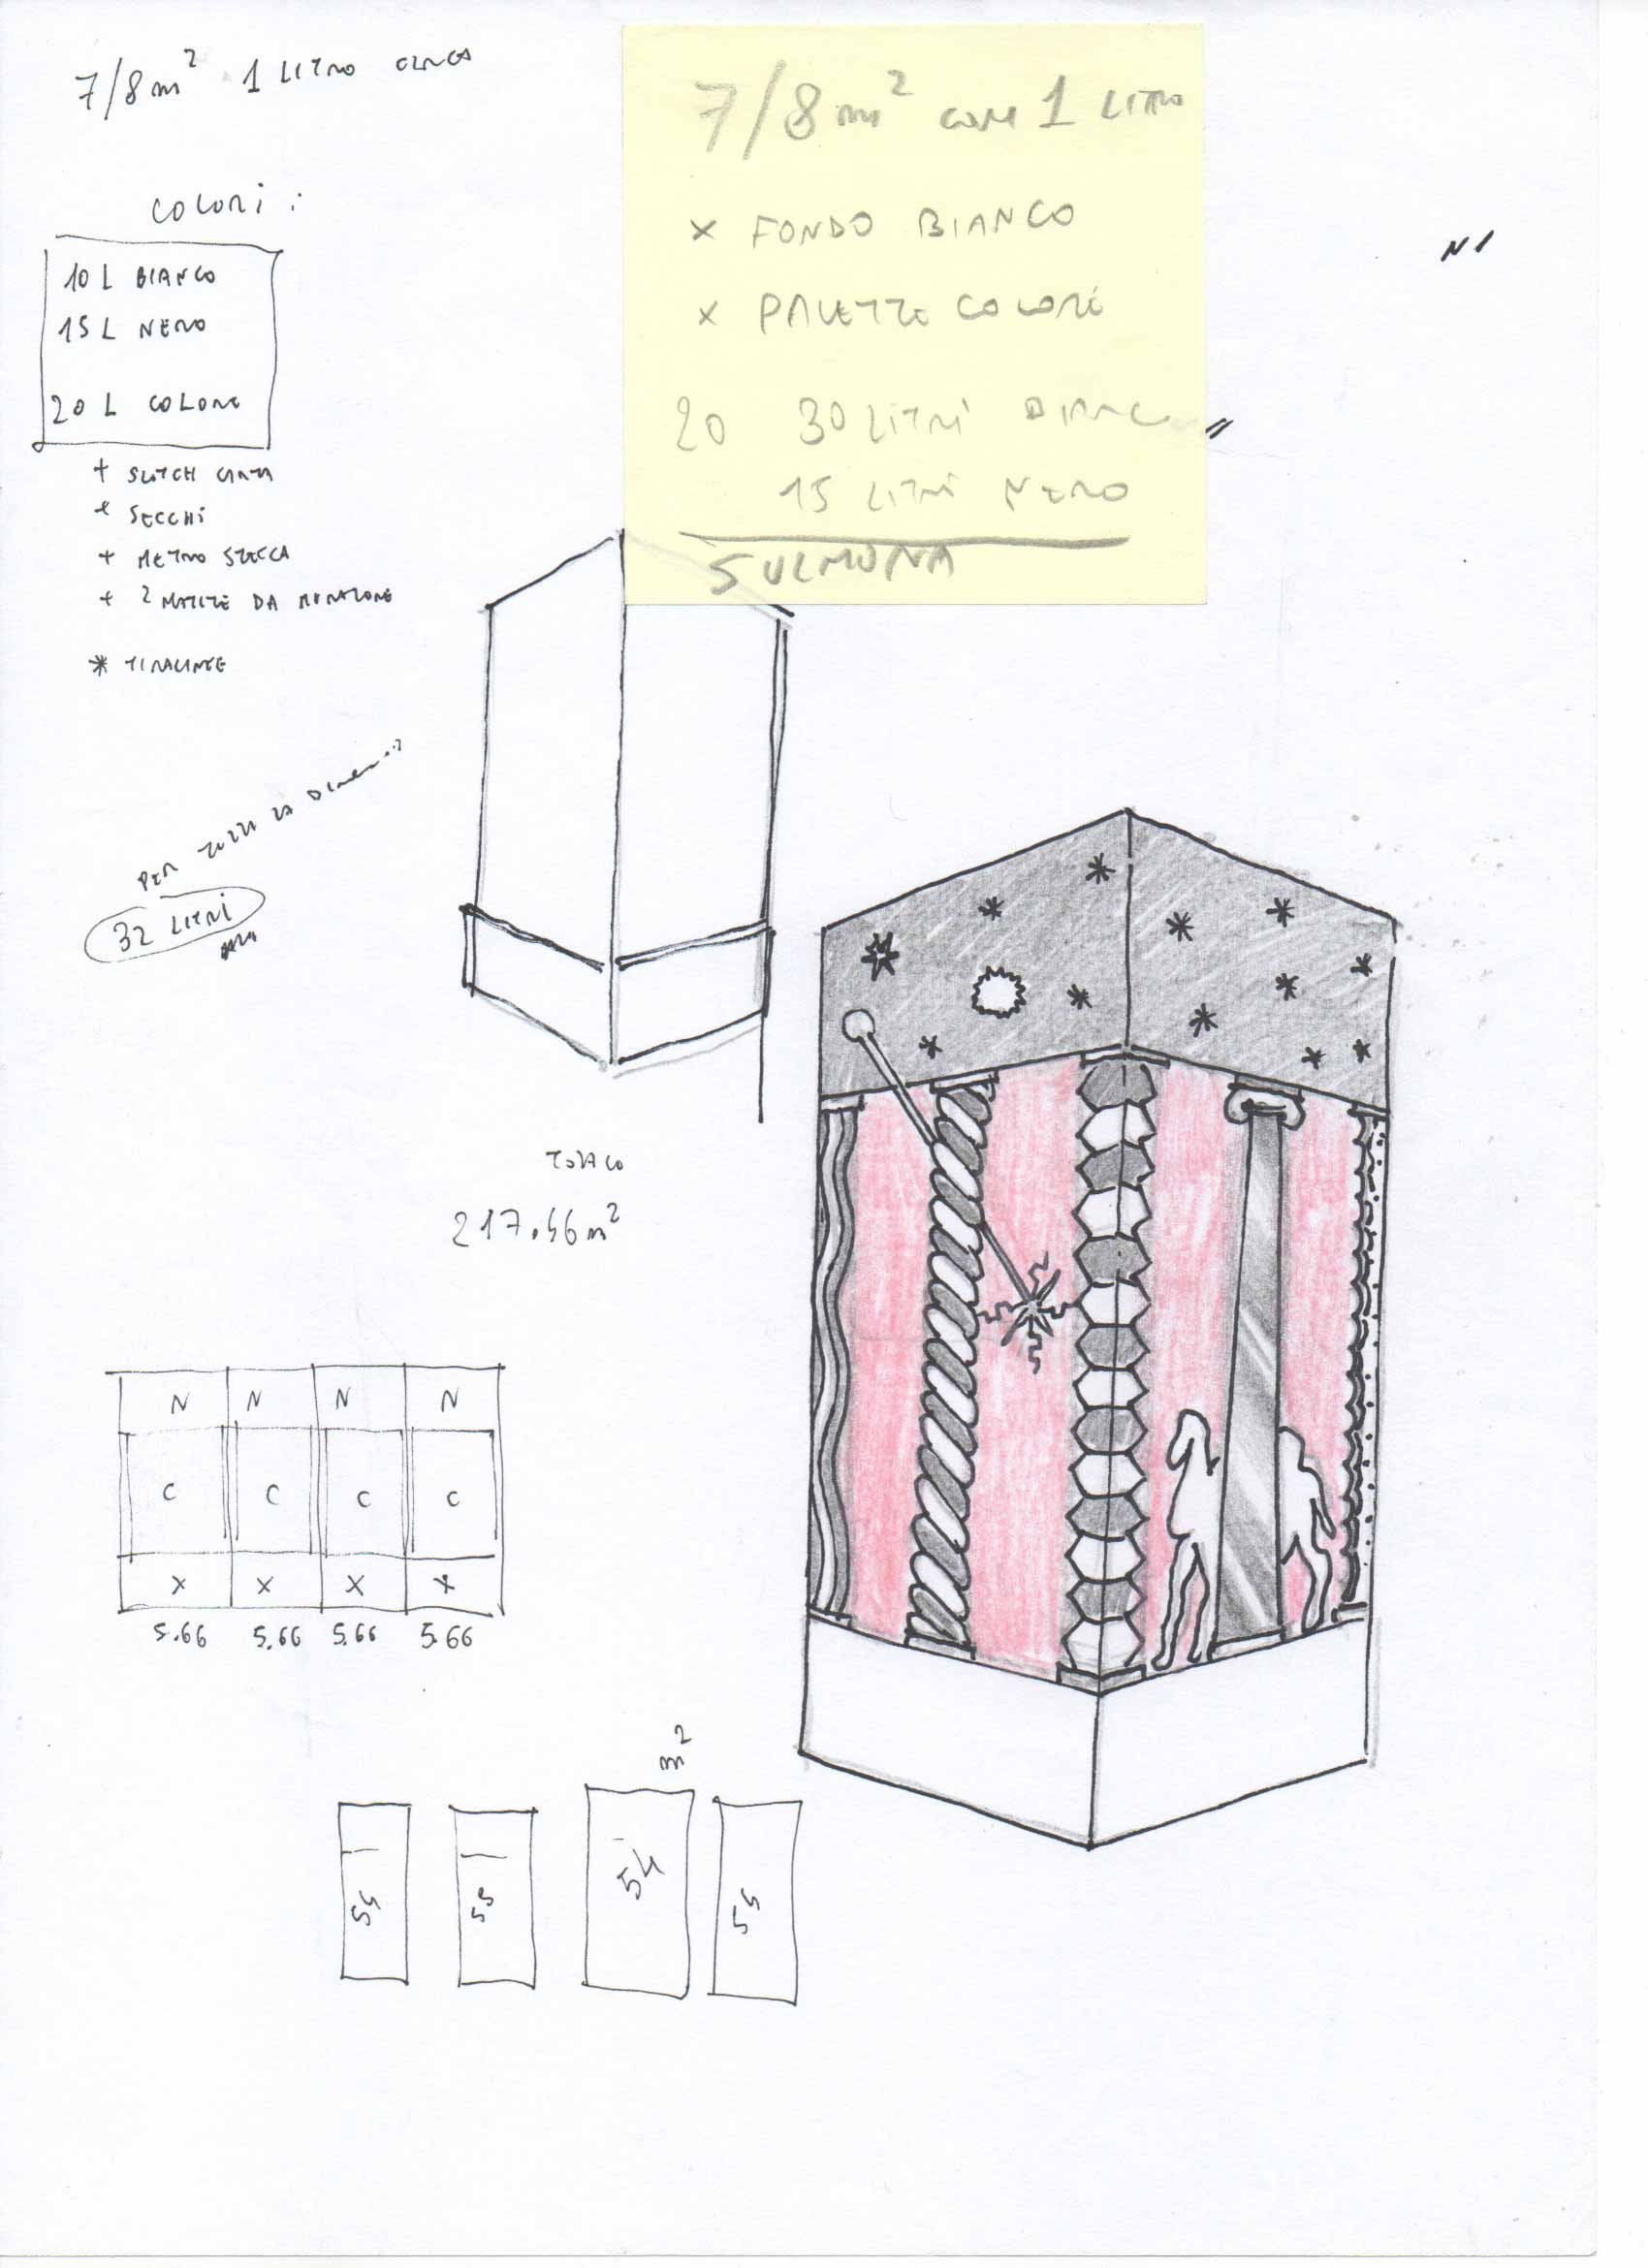 7/8 m² 1 LITRO CIRCA
COLORI:
10 L BIANCO
15 L NERO
20 L COLORE
+ SCOTCH CARTA
+ SECCHI
+ METRO STECCA
+ 2 MATITE DA MURATORE
* TIRALINEE
7/8 m² CON 1 LITRO
x FONDO BIANCO
x PALETTE COLORI
20 30 LITRI BIANC
15 LITRI NERO
SULMONA
PER TUTTA LA
32 LITRI
TOTALE
217.66 m²
N N N N
C C C C
X X X X
5.66 5.66 5.66 5.66
m²
54 55 54 54